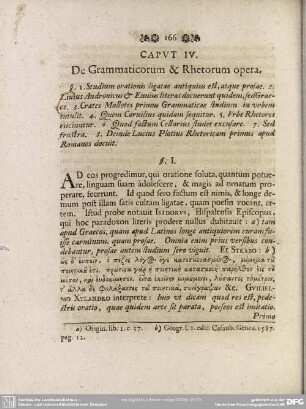 166
CAPVT IV.
De Grammaticorum & Rhetorum opera.
§. 1. Studium orationis ligatae antiquius est, atque prosae. 2.
Livius Andronicus & Ennius literas docuerunt quidem, sed Grae-
ce. 3. Crates Mallotes primum Grammaticae studium in vrbem
intulit. 4. Quem Carnilius quidam sequitur. 5. Vrbe Rhetores
eiiciuntur. 6. Quod factum Cellarius studet excusare. 7. Sed
frustra. 8. Deinde Lucius Plotius Rhetoricam primus apud
Romanos docuit.
§. I.
AD eos progredimur, qui oratione soluta, quantum potue-
runt, linguam suam adolescere, & magis ad ornatum prope-
rare, fecerunt. Id quod sero factum est nimis, & longe de-
mum post illam satis cultam ligatae, quam poesin vocant, ar-
tem. Istud probe notauit ISIDORVS, Hispalensis Episcopus,
qui hoc paradoxon literis prodere nullus dubitauit: a) tam
apud Graecos, quam apud Latinos longe antiquiorem curam fu-
isse carminum, quam prosae. Omnia enim prius versibus con-
debantur, prosae autem studium sero viguit. Et STRABO: b)
&c. GVILIEL-
MO XYLANDRO interprete: Imo vt dicam quod res est, pede-
stris oratio, quae quidem arte sit parata, poeseos est imitatio.
Primo
a) Origin. lib. 1. c. 27. b) Geogr. l. 1. edit. Casaub. Geneu. 1587.
pag. 12.